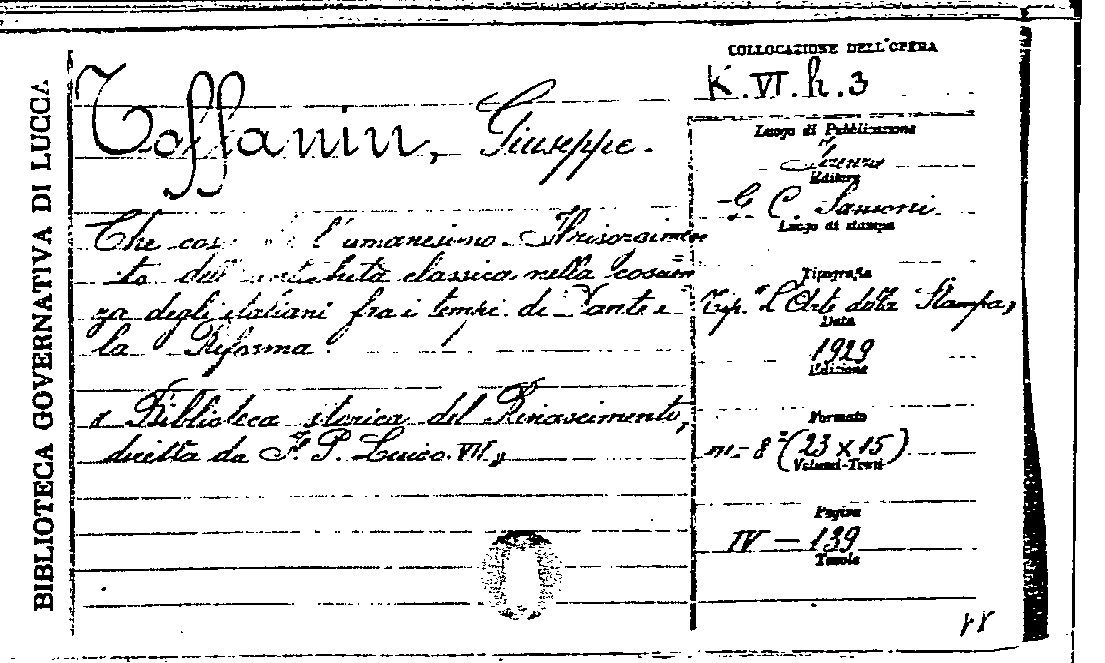 BIBLIOTECA GOVERNATIVA DI LUCCA
COLLOCAZIONE DELL'OPERA
K.VI.h.3
Toffanin, Giuseppe.
Luogo di Pubblicazione
Firenze
Editore
G. C. Sansoni
Luogo di stampa
Che cosa l'umanesimo. Il risorgimen
to dell'antichità classica nella coscien
za degli italiani fra i tempi di Dante e
la Riforma.
Tipografia
Tip. "L'Arte della Stampa"
Data
1929
Edizione
"Biblioteca storica del Rinascimento,
diretta da F. P. Luiso. VII"
Formato
in-8° (23 x 15)
Volumi-Tomi
Pagine
IV - 139
Tavole